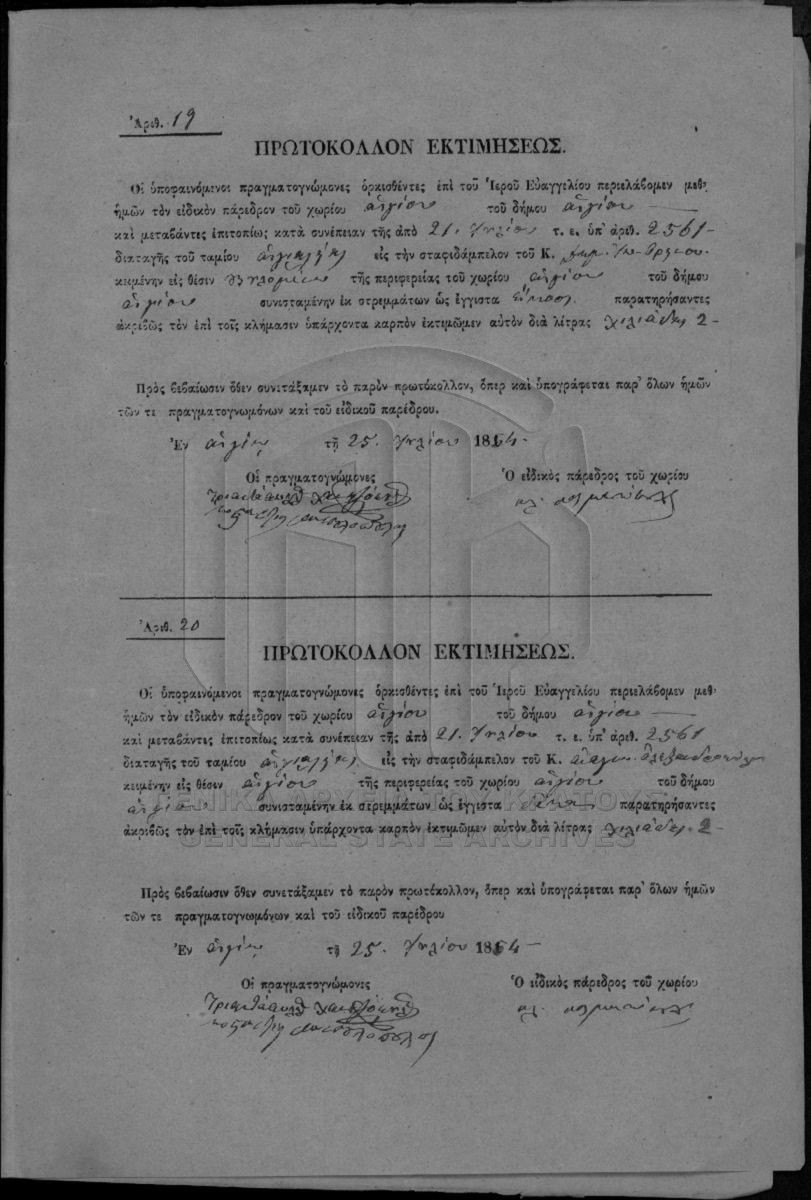 Ἀριθ. 19
ΠΡΩΤΟΚΟΛΛΟΝ ΕΚΤΙΜΗΣΕΩΣ.
Οἱ ὑποφαινόμενοι πραγματογνώμονες ὁρκισθέντες ἐπὶ τοῦ Ἱεροῦ Εὐαγγελίου περιελάβομεν μεθ'
ἡμῶν τὸν εἰδικὸν πάρεδρον τοῦ χωρίου Αἰγίου τοῦ δήμου Αἰγίου
καὶ μεταβάντες ἐπιτοπίως κατὰ συνέπειαν τῆς ἀπὸ 21. Ἰουλίου τ. ε. ὑπ' ἀριθ. 2561
διαταγῆς τοῦ ταμίου Αἰγιαλείας εἰς τὴν σταφιδάμπελον τοῦ Κ.
κειμένην εἰς θέσιν τῆς περιφερείας τοῦ χωρίου Αἰγίου τοῦ δήμου
Αἰγίου συνισταμένην ἐκ στρεμμάτων ὡς ἔγγιστα εἴκοσι παρατηρήσαντες
ἀκριβῶς τὸν ἐπὶ τοῖς κλήμασιν ὑπάρχοντα καρπὸν ἐκτιμῶμεν αὐτὸν διὰ λίτρας χιλιάδας 2
Πρὸς βεβαίωσιν ὅθεν συνετάξαμεν τὸ παρὸν πρωτόκολλον, ὅπερ καὶ ὑπογράφεται παρ' ὅλων ἡμῶν
τῶν τε πραγματογνωμόνων καὶ τοῦ εἰδικοῦ παρέδρου.
Ἐν Αἰγίῳ τῇ 25. Ἰουλίου 1864
Οἱ πραγματογνώμονες Ὁ εἰδικὸς πάρεδρος τοῦ χωρίου
Ἀριθ. 20
ΠΡΩΤΟΚΟΛΛΟΝ ΕΚΤΙΜΗΣΕΩΣ.
Οἱ ὑποφαινόμενοι πραγματογνώμονες ὁρκισθέντες ἐπὶ τοῦ Ἱεροῦ Εὐαγγελίου περιελάβομεν μεθ'
ἡμῶν τὸν εἰδικὸν πάρεδρον τοῦ χωρίου Αἰγίου τοῦ δήμου Αἰγίου
καὶ μεταβάντες ἐπιτοπίως κατὰ συνέπειαν τῆς ἀπὸ 21. Ἰουλίου τ. ε. ὑπ' ἀριθ. 2561
διαταγῆς τοῦ ταμίου Αἰγιαλείας εἰς τὴν σταφιδάμπελον τοῦ Κ.
κειμένην εἰς θέσιν Αἰγίου τῆς περιφερείας τοῦ χωρίου Αἰγίου τοῦ δήμου
Αἰγίου συνισταμένην ἐκ σερεμμάτων ὡς ἔγγιστα δέκα παρατηρήσαντες
ἀκριβῶς τὸν ἐπὶ τοῖς κλήμασιν ὑπάρχοντα καρπὸν ἐκτιμῶμεν αὐτὸν διὰ λίτρας χιλιάδας 2
GENERAL STATE ARCHIVES
Πρὸς βεβαίωσιν ὅθεν συνετάξαμεν τὸ παρὸν πρωτόκολλον, ὅπερ καὶ ὑπογράφεται παρ' ὅλων ἡμῶν
τῶν τε πραγματογνωμόνων καὶ τοῦ εἰδικοῦ παρέδρου
Ἐν Αἰγίῳ τῇ 25. Ἰουλίου 1864
Οἱ πραγματογνώμονες Ὁ εἰδικὸς πάρεδρος τοῦ χωρίου